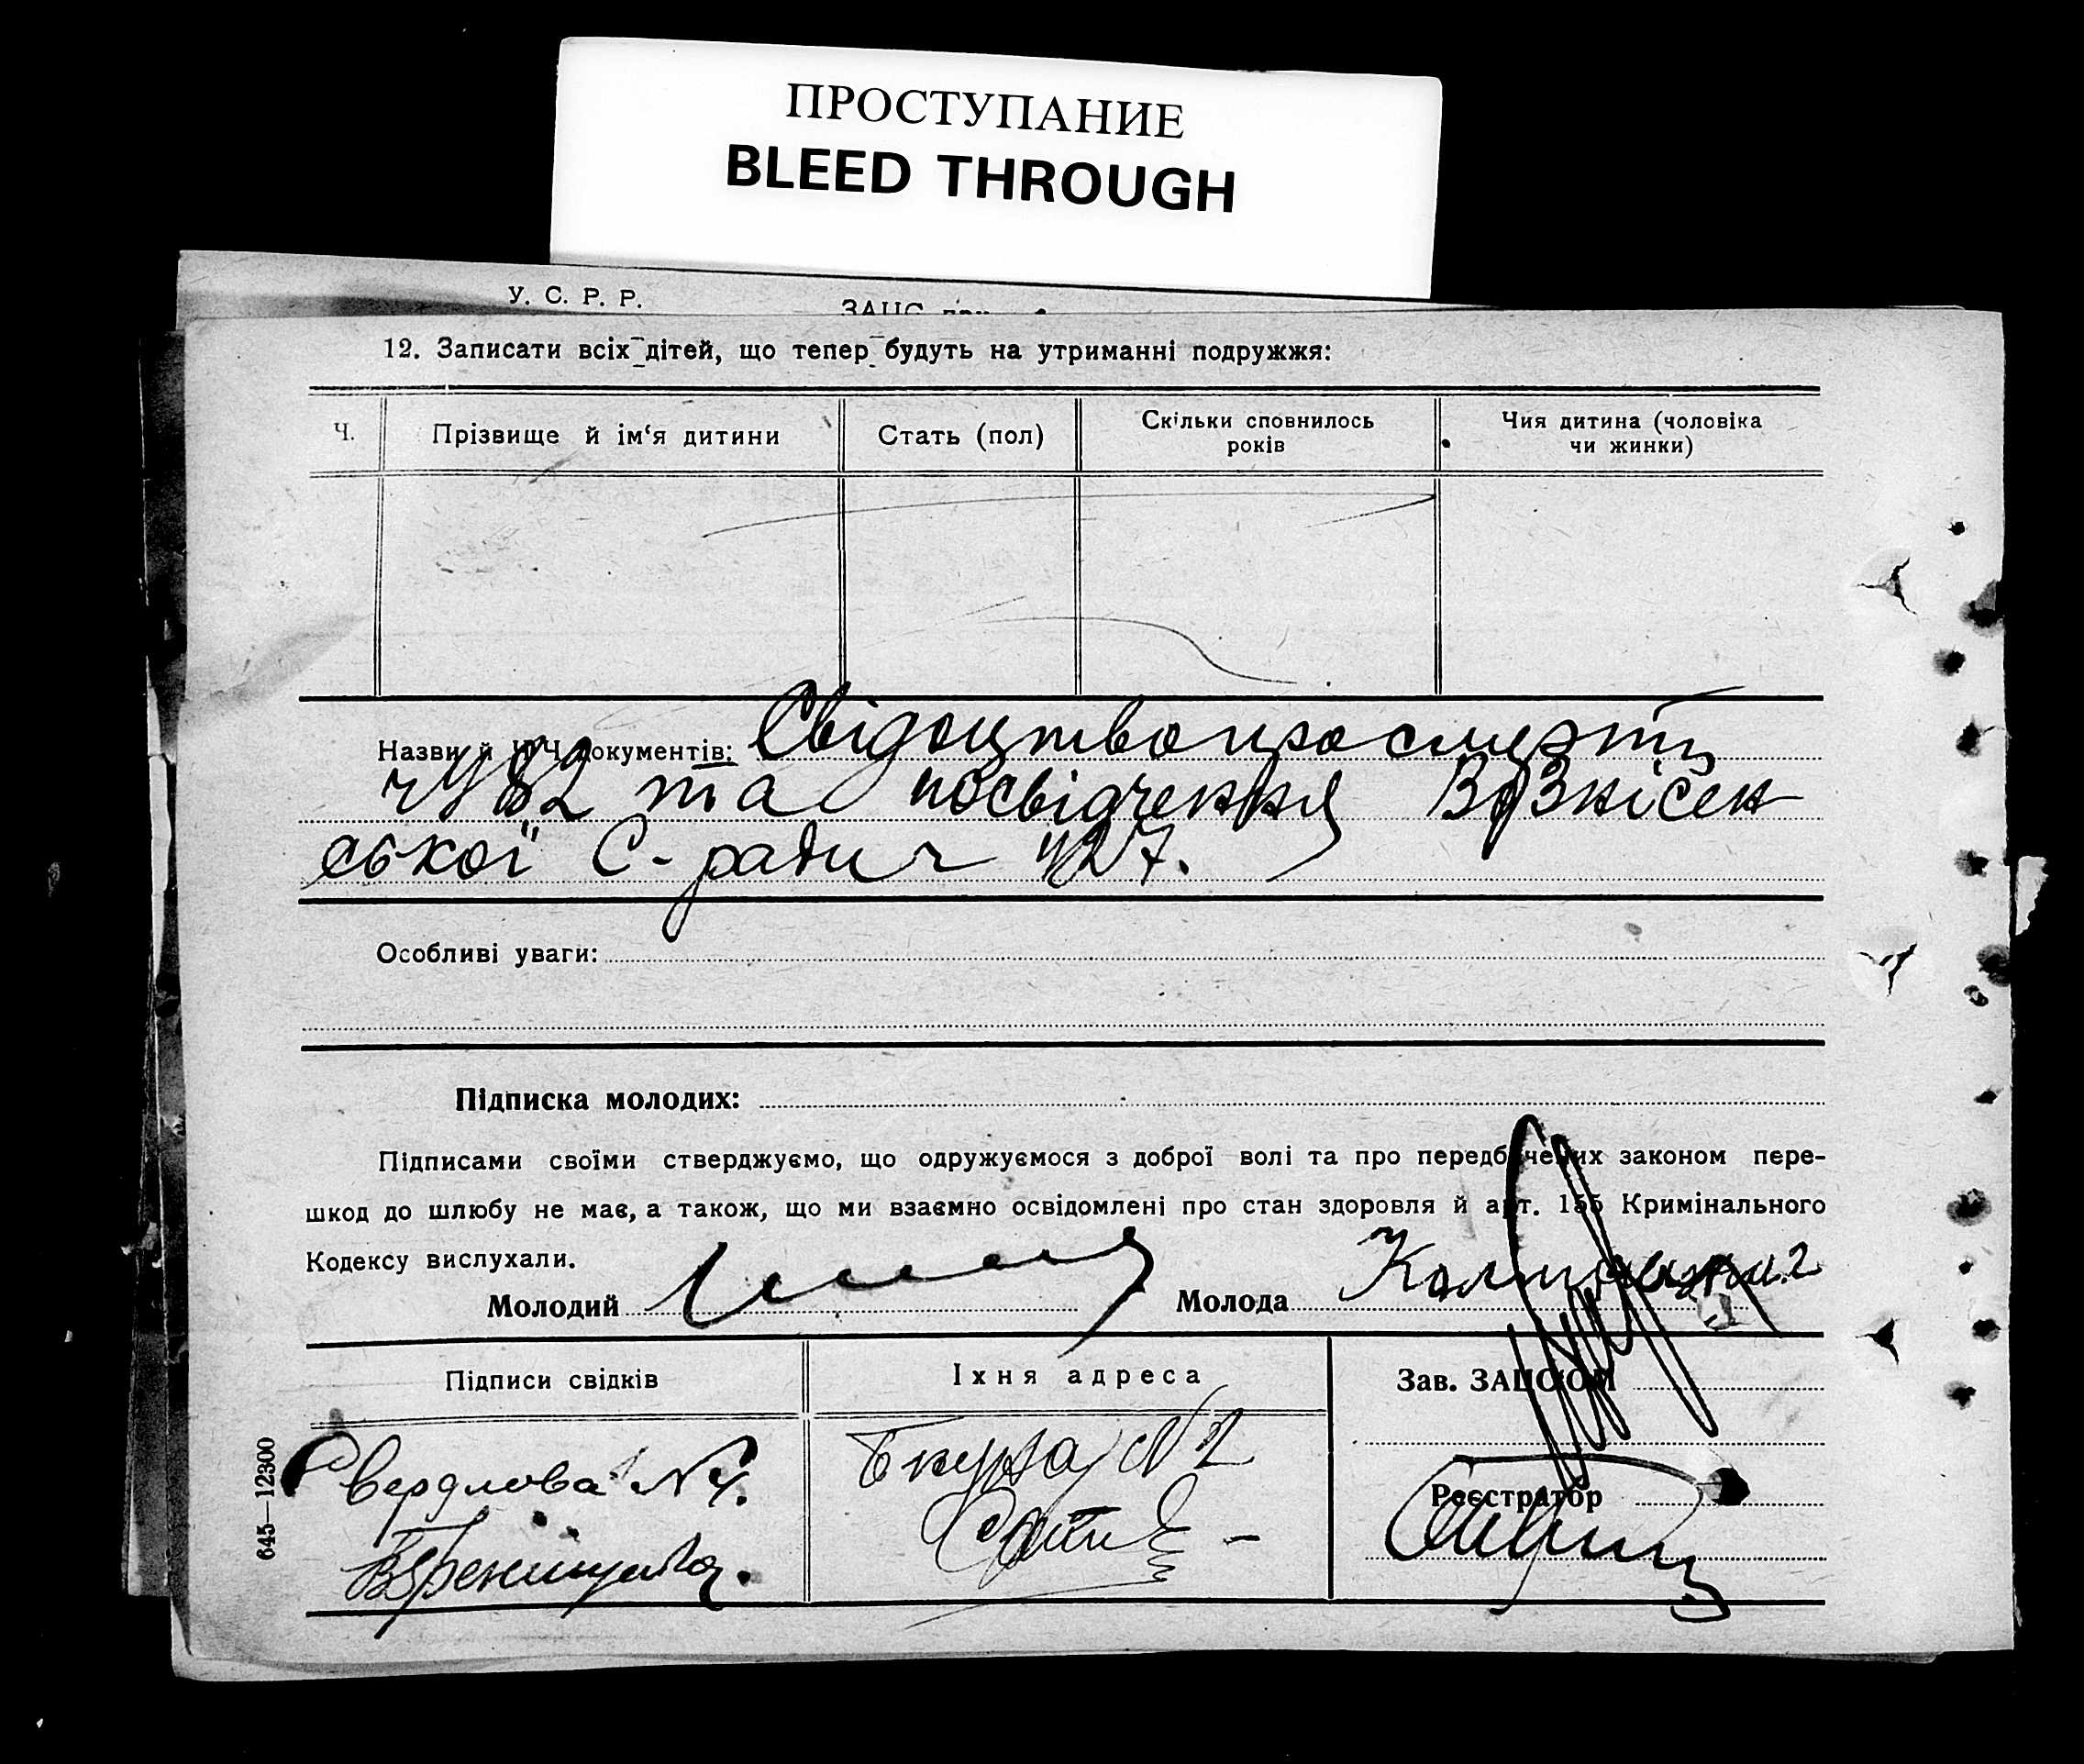 ПРОСТУПАНИЕ
BLEED THROUGH
У. С. Р. Р.
ЗАЦС
12. Записати всіх дітей, що тепер будуть на утриманні подружжя:
Ч.
Прізвище й ім‘я дитини
Стать (пол)
Скільки сповнилось
років
Чия дитина (чоловіка
чи жинки)
Назви й Ч.Ч. документів: Свідоцтво про смерть
ч 482 та посвідчення Вознісен
ської С-ради ч 427.
Особливі уваги:
Підписка молодих:
Підписами своїми стверджуємо, що одружуємося з доброї волі та про передбачених законом пере-
шкод до шлюбу не має, а також, що ми взаємно освідомлені про стан здоровля й арт. 155 Кримінального
Кодексу вислухали.
Молодий
Молода
Підписи свідків
Іхня адреса
Зав. ЗАЦСОМ
Свердлова N 4.
Реєстратор
645—12300